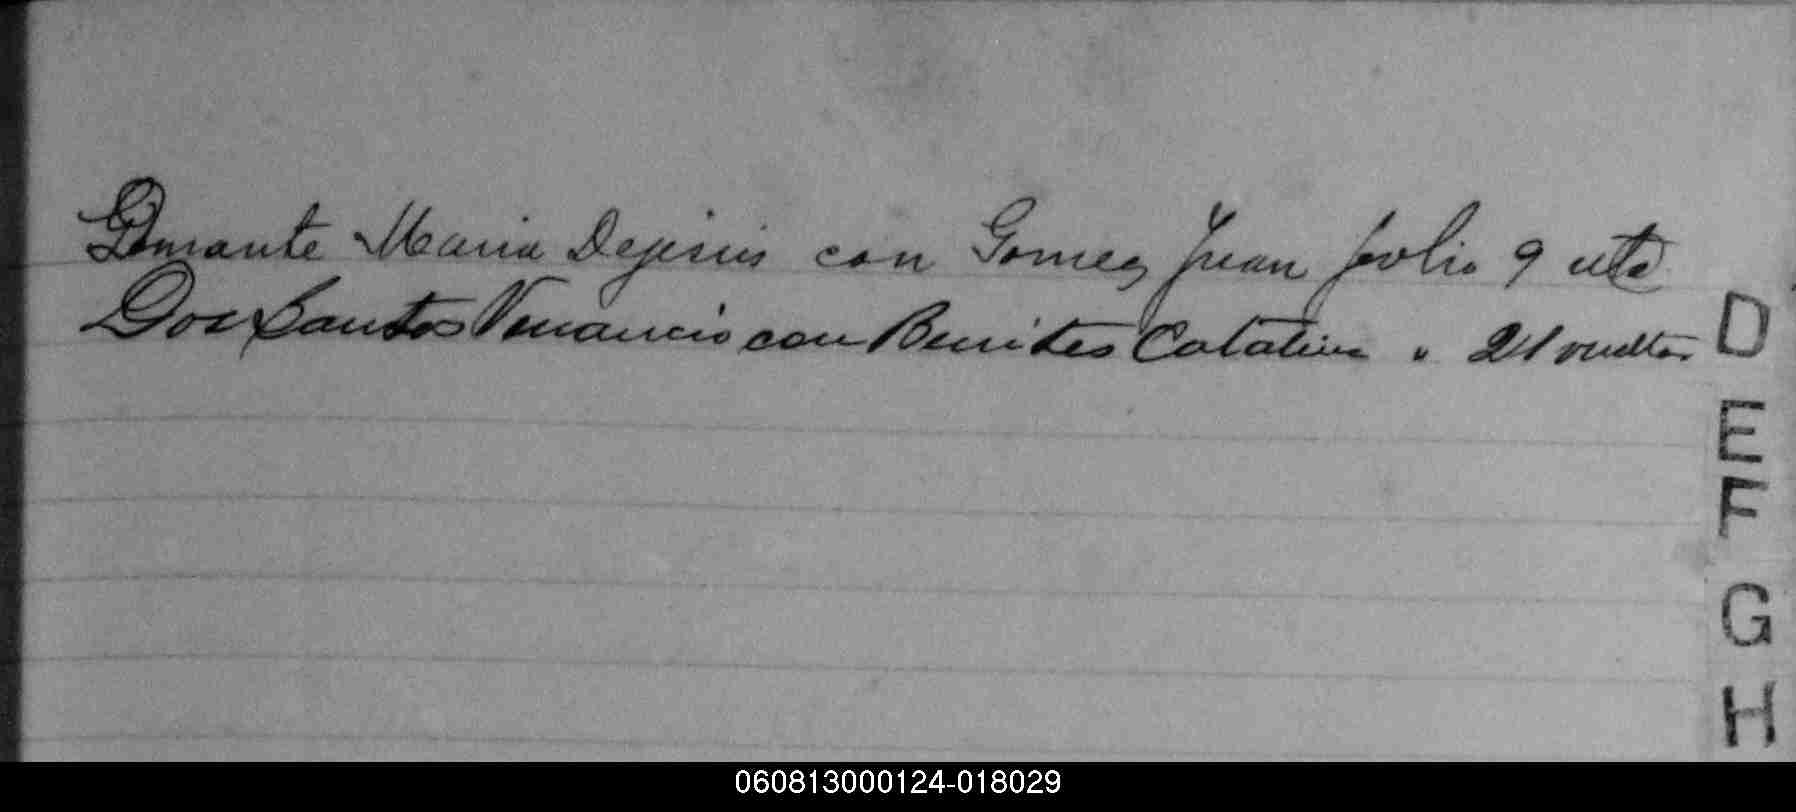 Maria Dejesus con Gomez Juan folio 9 vta
Dos Santos Venancio con Benites Catalina " 21 vuelta
D
E
F
G
H
060813000124-018029